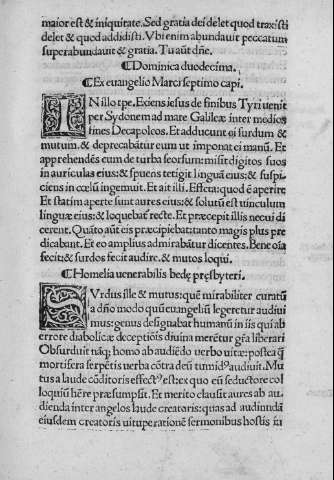 maior est & iniquitate. Sed gratia dei delet quod traxisti
delet & quod addidisti. Vbi enim abundauit peccatum
superabundauit & gratia. Tu aūt dñe.
¶Dominica duodecima.
¶Ex euangelio Marci septimo capi.
IN illo tpe. Exiens iesus de finibus Tyri uenit
per Sydonem ad mare Galileæ inter medios
fines Decapoleos. Et adducunt ei surdum &
mutum. & deprecabātur eum ut imponat ei manū. Et
apprehendēs eum de turba seorsum: misit digitos suos
in auriculas eius: & spuens tetigit linguā eius: & suspi⸗
ciens in cœlū ingemuit. Et ait illi. Effeta: quod ē aperire
Et statim aperte sunt aures eius: & solutū est uinculum
linguæ eius: & loquebať recte. Et præcepit illis ne cui di
cerent. Quāto aūt eis præcipiebat: tanto magis plus præ
dicabant. Et eo amplius admirabātur dicentes. Bene oīa
fecit: & surdos fecit audire. & mutos loqui.
¶Homelia uenerabilis bedę pręsbyteri.
SVrdus ille & mutus: quē mirabiliter curatū
a dño modo quū euangeliū legeretur audiui
mus: genus designabat humanū in iis qui ab
errore diabolicæ deceptiōis diuina merētur gr̄a liberari
Obsurduit nāq; homo ab audiēdo uerbo uitæ: postea q̄
mortifera serpētis uerba cōtra deū tumidꝰ audiuit. Mu
tus a laude cōditoris effectꝰ est: ex quo eū seductore col
loquiū hēre præsumpsit. Et merito clausit aures ab au⸗
dienda inter angelos laude creatoris: quas ad audiundā
eiusdem creatoris uituperationē sermonibus hostis in